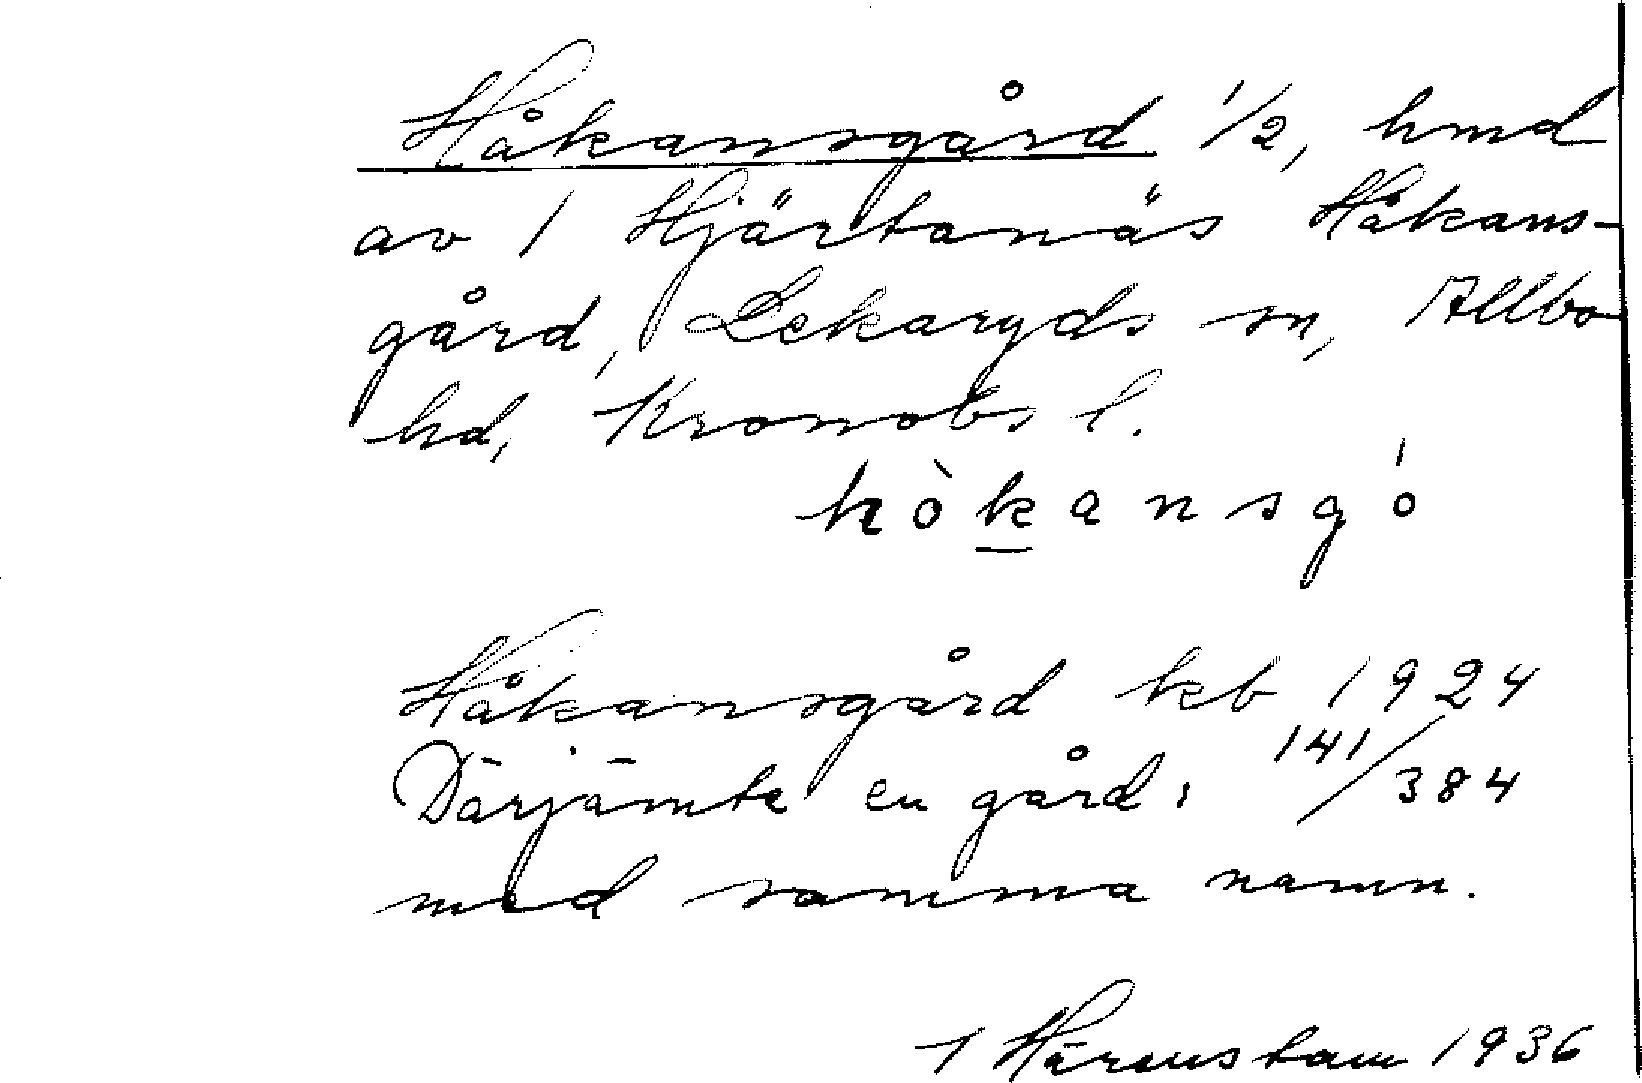 Håkansgård 1/2, hmd
av 1 Hjärtanäs Håkans-
gård, Lekaryds sn, Allbo
hd, Kronobs l.
hòkansgó
Håkansgård kb 1924
Därjämte en gård: 141/384
med samma namn.
I Härenstam 1936